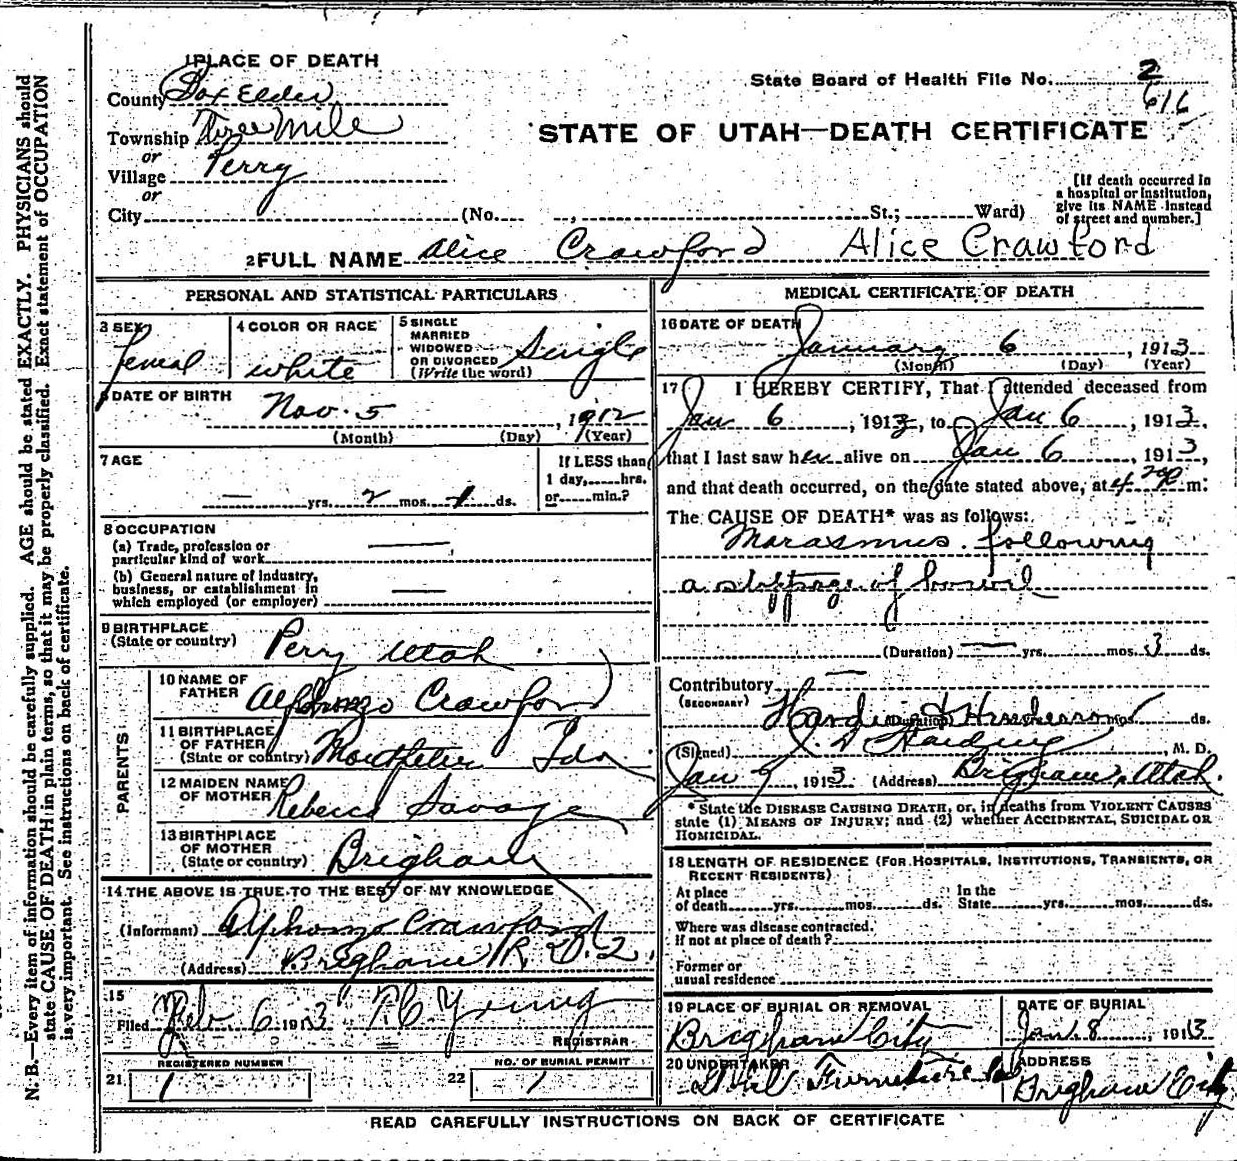 N. B.—Every item of information should be carefully supplied. AGE should be stated EXACTLY. PHYSICIANS should
state CAUSE OF DEATH in plain terms, so that it may be properly classified. Exact statement of OCCUPATION
is very important. See instructions on back of certificate.
1 PLACE OF DEATH
State Board of Health File No. 2
616
County Box Elder
STATE OF UTAH—DEATH CERTIFICATE
Township Three Mile
or
Village Perry
or
City (No. , St.; Ward)
[If death occurred in
a hospital or institution,
give its NAME instead
of street and number.]
2 FULL NAME Alice Crawford Alice Crawford
PERSONAL AND STATISTICAL PARTICULARS
3 SEX Femal
4 COLOR OR RACE white
5 SINGLE
MARRIED
WIDOWED
OR DIVORCED
(Write the word) Single
6 DATE OF BIRTH
Nov. 5, 1912
(Month) (Day) (Year)
7 AGE
— yrs. 2 mos. 1 ds.
If LESS than
1 day, hrs.
or min.?
8 OCCUPATION
(a) Trade, profession or
particular kind of work —
(b) General nature of industry,
business, or establishment in
which employed (or employer) —
9 BIRTHPLACE
(State or country) Perry Utah
PARENTS
10 NAME OF
FATHER Alphonzo Crawford
11 BIRTHPLACE
OF FATHER
(State or country) Montpelier Ida
12 MAIDEN NAME
OF MOTHER Rebecca Savage
13 BIRTHPLACE
OF MOTHER
(State or country) Brigham
14 THE ABOVE IS TRUE TO THE BEST OF MY KNOWLEDGE
(Informant) Alphonzo Crawford
(Address) Brigham R.D.2.
15
Filed Feb. 6 1913 T.C. Young
REGISTRAR
REGISTERED NUMBER
21 1
NO. OF BURIAL PERMIT
22 1
MEDICAL CERTIFICATE OF DEATH
16 DATE OF DEATH
January 6, 1913
(Month) (Day) (Year)
17 I HEREBY CERTIFY, That I attended deceased from
Jan 6, 1913, to Jan 6, 1913,
that I last saw her alive on Jan 6, 1913,
and that death occurred, on the date stated above, at 4 m.
The CAUSE OF DEATH* was as follows:
Marasmus. following
a stoppage of bowel
(Duration) — yrs. mos. 3 ds.
Contributory —
(SECONDARY)
Harding & Henderson
(Duration) mos. ds.
(Signed) Harding, M. D.
Jan 7, 1913 (Address) Brigham, Utah.
* State the DISEASE CAUSING DEATH, or, in deaths from VIOLENT CAUSES
state (1) MEANS OF INJURY; and (2) whether ACCIDENTAL, SUICIDAL OR
HOMICIDAL.
18 LENGTH OF RESIDENCE (FOR HOSPITALS, INSTITUTIONS, TRANSIENTS, OR
RECENT RESIDENTS)
At place
of death yrs. mos. ds.
In the
State yrs. mos. ds.
Where was disease contracted,
if not at place of death?
Former or
usual residence
19 PLACE OF BURIAL OR REMOVAL
Brigham City
DATE OF BURIAL
Jan. 8, 1913
20 UNDERTAKER
Furniture
ADDRESS
Brigham City
READ CAREFULLY INSTRUCTIONS ON BACK OF CERTIFICATE